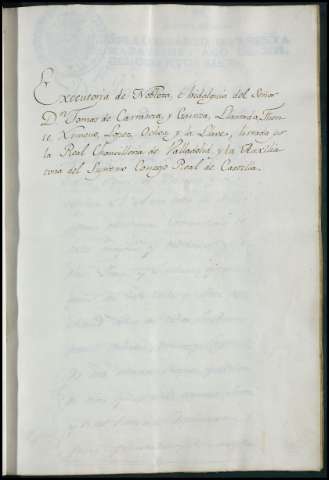 Executoria de Nobleza, e hidalguia del Señor
Dn. Tomas de Carranza, y Guinea, Llantada,
Ximeno, Lopez, Ochoa, y la Llave, librada por
la Real Chancilleria de Valladolid, y la Auxilia
toria del Supremo Consejo Real de Castilla.